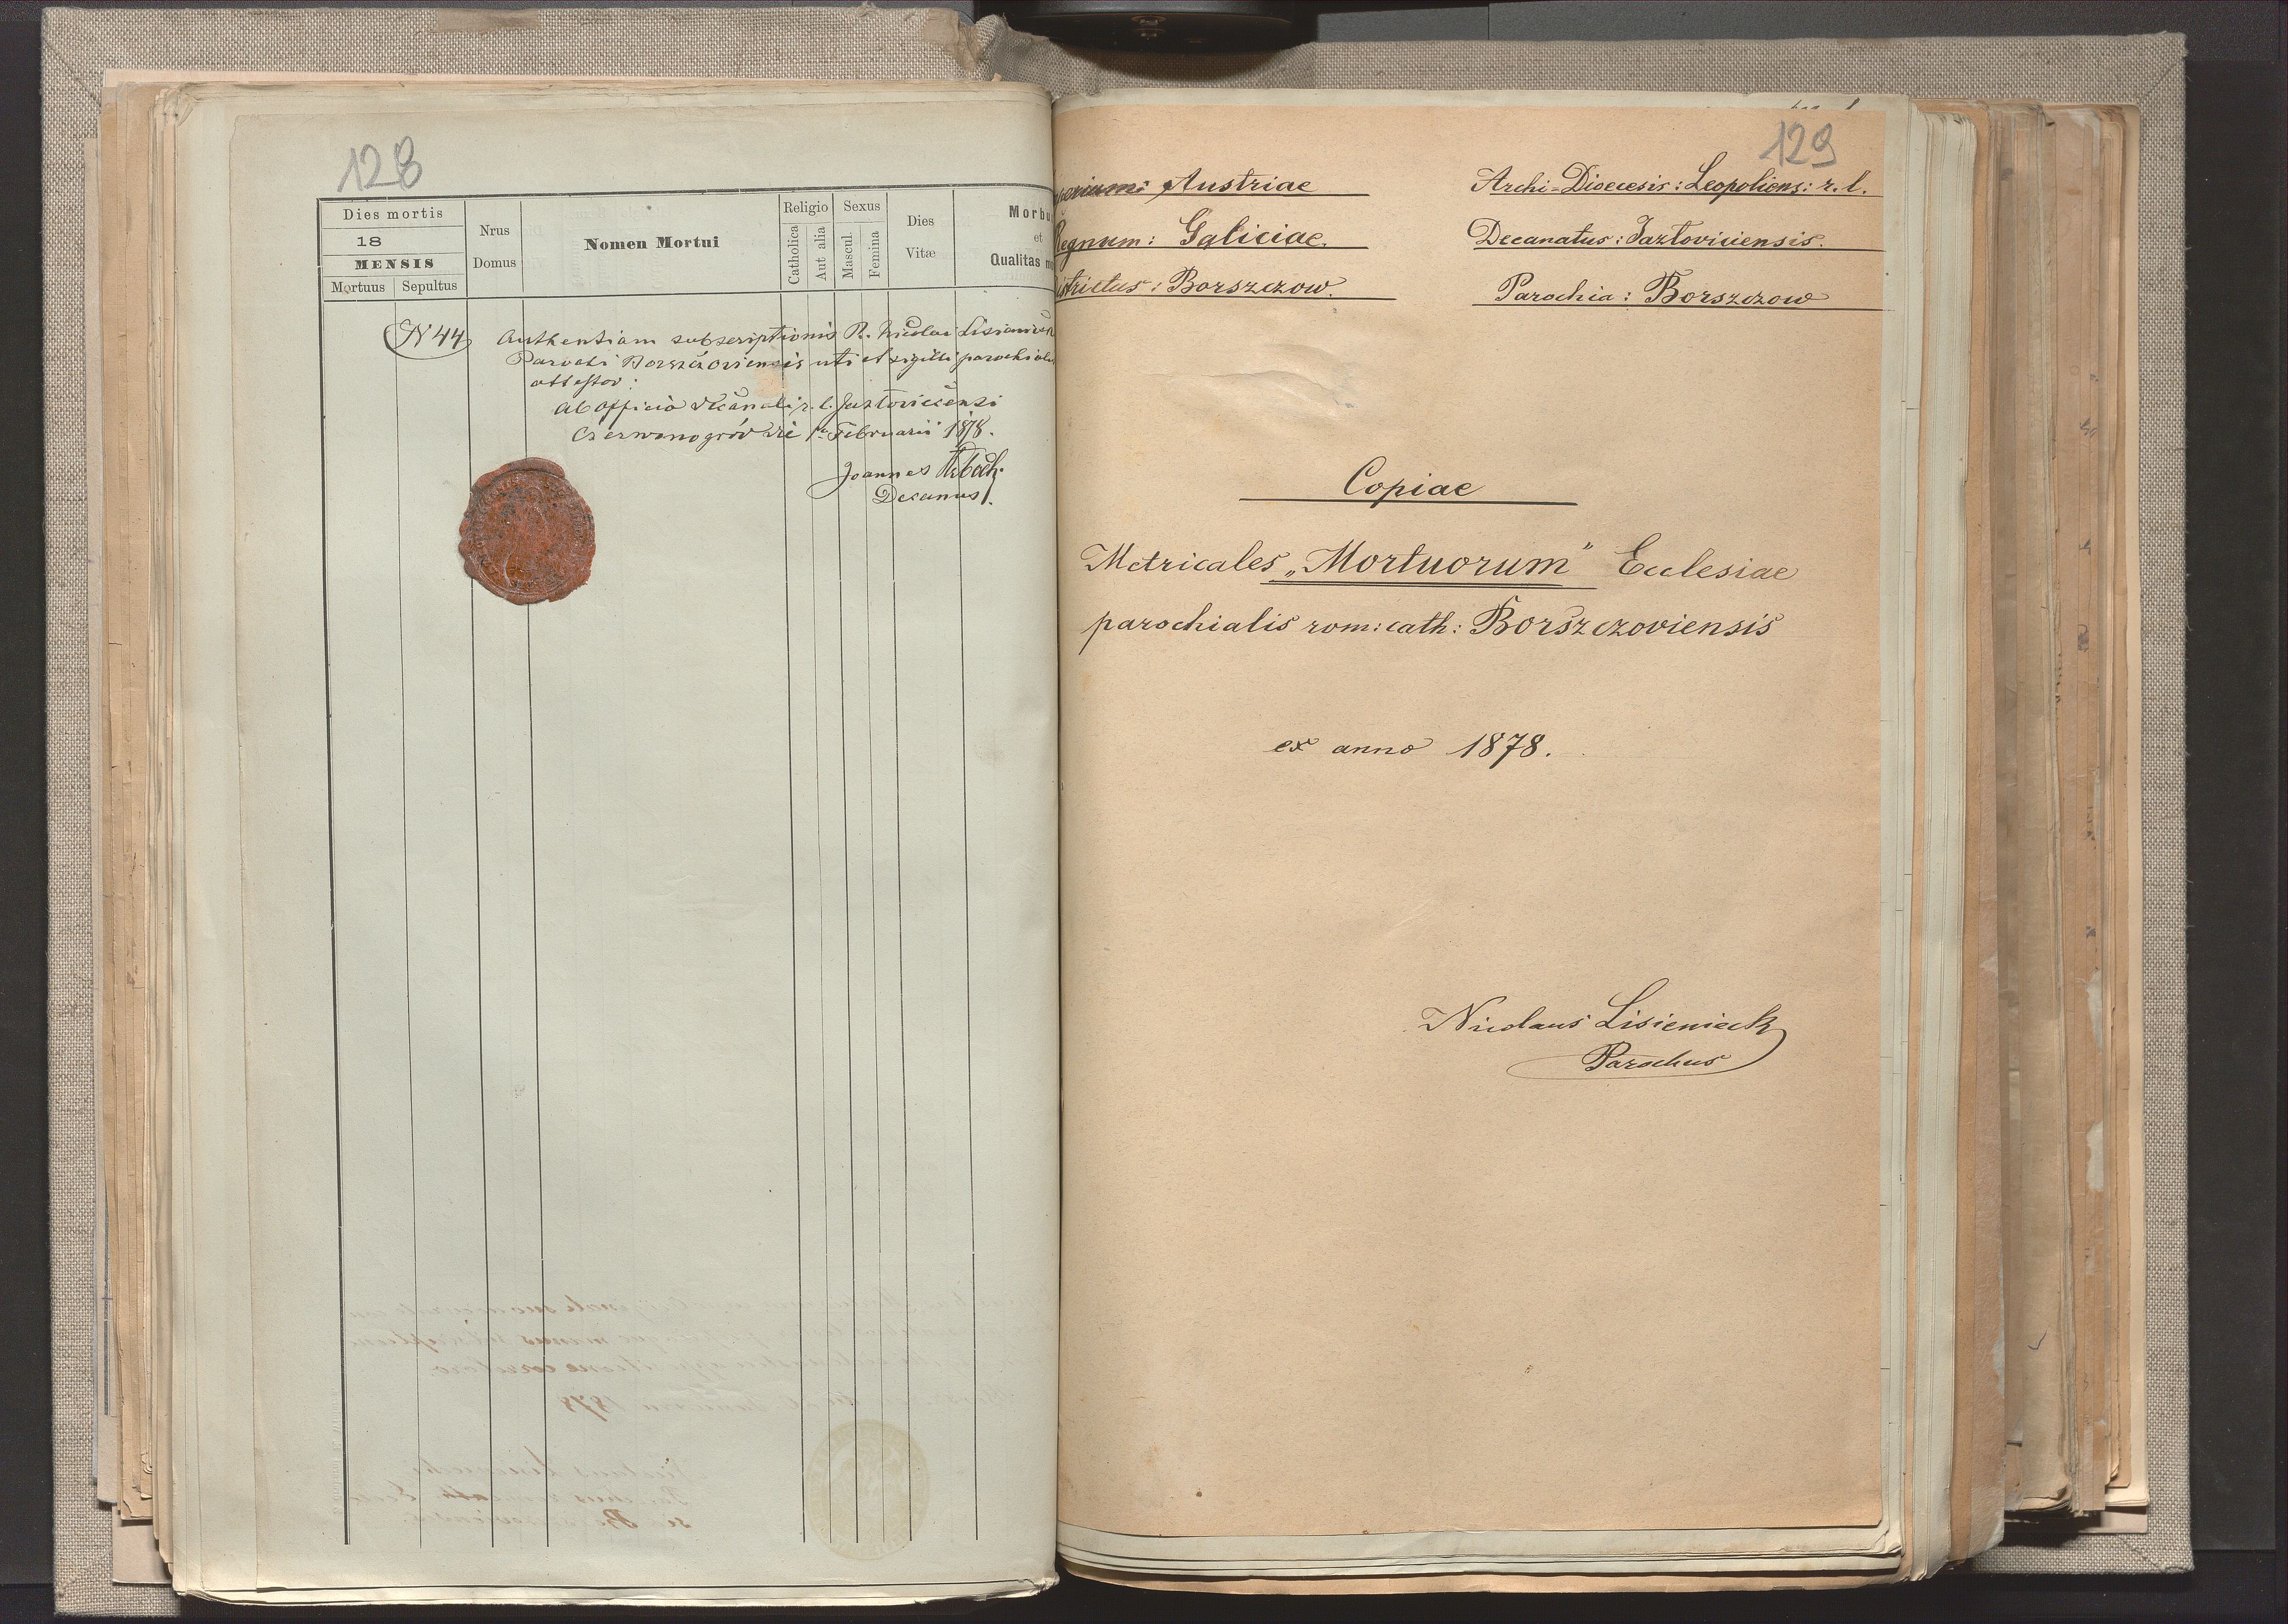 128
Dies mortis
18
MENSIS
Mortuus Sepultus
Nrus
Domus
Nomen Mortui
Religio
Catholica
Aut alia
Sexus
Mascul.
Femina
Dies
Vitæ
Morbu
et
Qualitas m
N 44
Authentiam subscriptionis R. Nicolai
Parochi Borszczoviensis uti et sigilli parochialis
attestor:
Ab Officio Decanali r. l. Jazlovicensi
Czerwonogródzie 1 Februarii 1878.
Joannes
Decanus.
129
Austriae
Regnum: Galiciae.
istrictus: Borszczow.
Archi-Dioecesis: Leopoliens: r. l.
Decanatus: Jazloviciensis.
Parochia: Borszczow
Copiae
Metricales „Mortuorum” Ecclesiae
parochialis rom: cath: Borszczoviensis
ex anno 1878.
Nicolaus Lisieniecki
Parochus